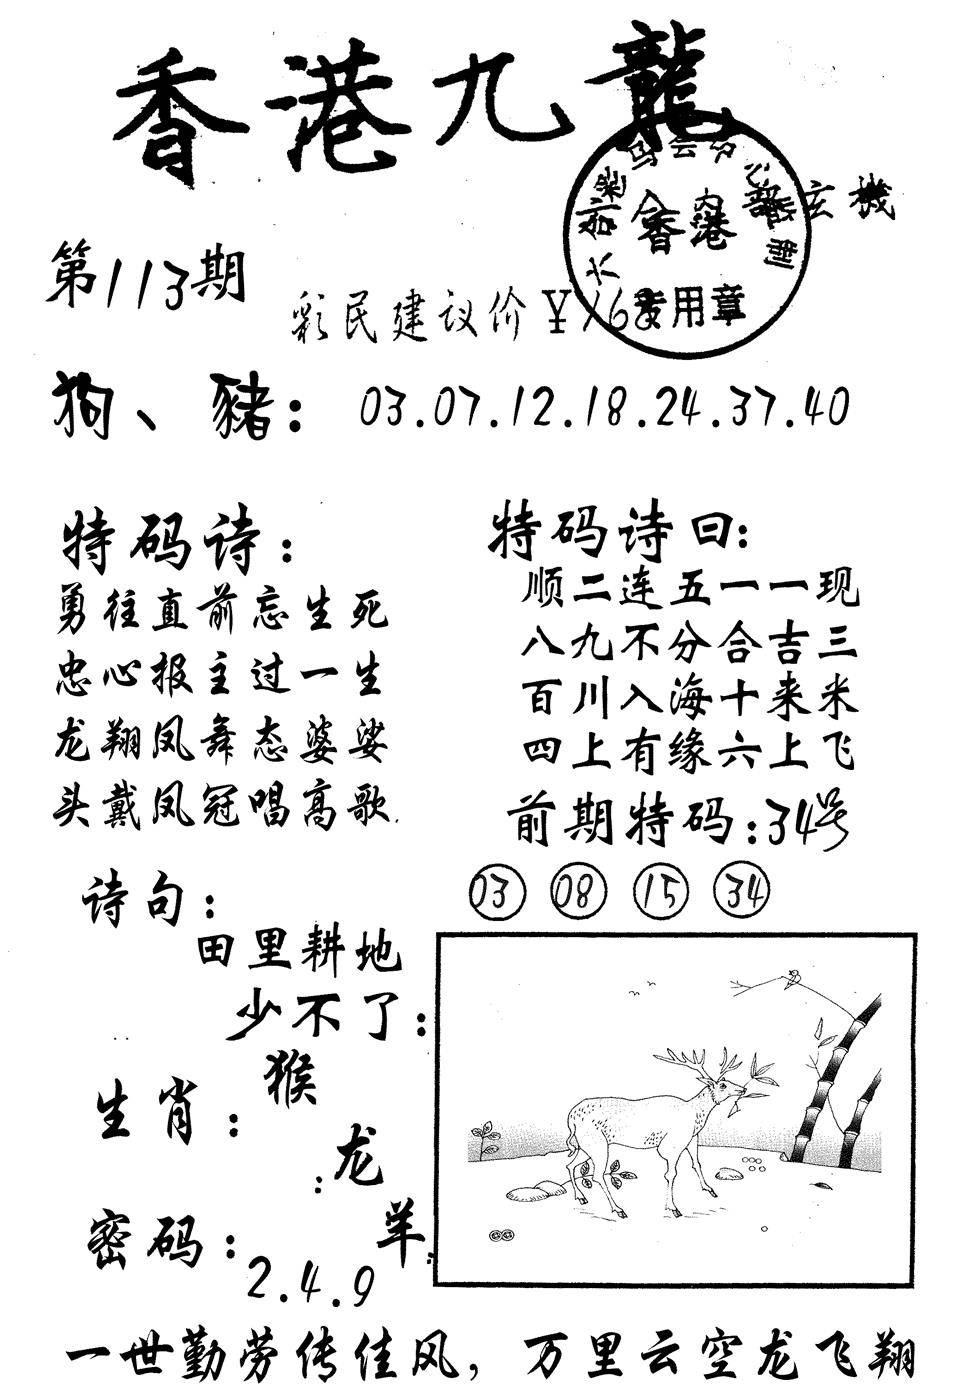 香港九龍
玄機
香港
专用章
第113期
彩民建议价¥168
狗、豬：03.07.12.18.24.37.40
特码诗：
勇往直前忘生死
忠心报主过一生
龙翔凤舞态婆娑
头戴凤冠唱高歌
特码诗曰：
顺二连五一一现
八九不分合吉三
百川入海十来米
四上有缘六上飞
前期特码：34号
03 08 15 34
诗句：
田里耕地
少不了：
生肖：猴
龙
羊
密码：
2.4.9
一世勤劳传佳风，万里云空龙飞翔